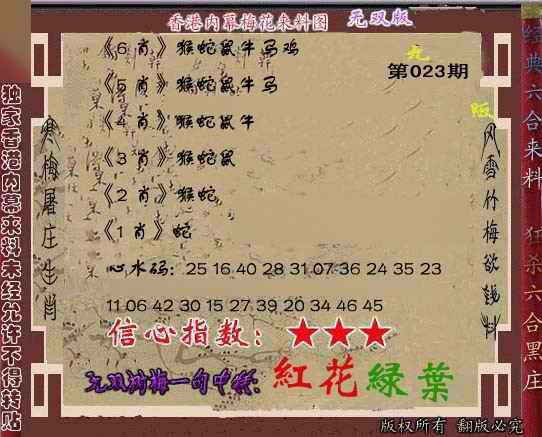 香港内幕梅花来料图 无双版
《6 肖》猴蛇鼠牛马鸡
第023期
《5 肖》猴蛇鼠牛马
《4 肖》猴蛇鼠牛
《3 肖》猴蛇鼠
《2 肖》猴蛇
《1 肖》蛇
心水码: 25 16 40 28 31 07 36 24 35 23
11 06 42 30 15 27 39 20 34 46 45
信心指数: ★★★
紅花綠葉
版权所有 翻版必究
独家香港内幕来料未经允许不得转贴
寒梅屠庄生肖
风雪竹梅欲钱料
经典六合来料 狂杀六合黑庄